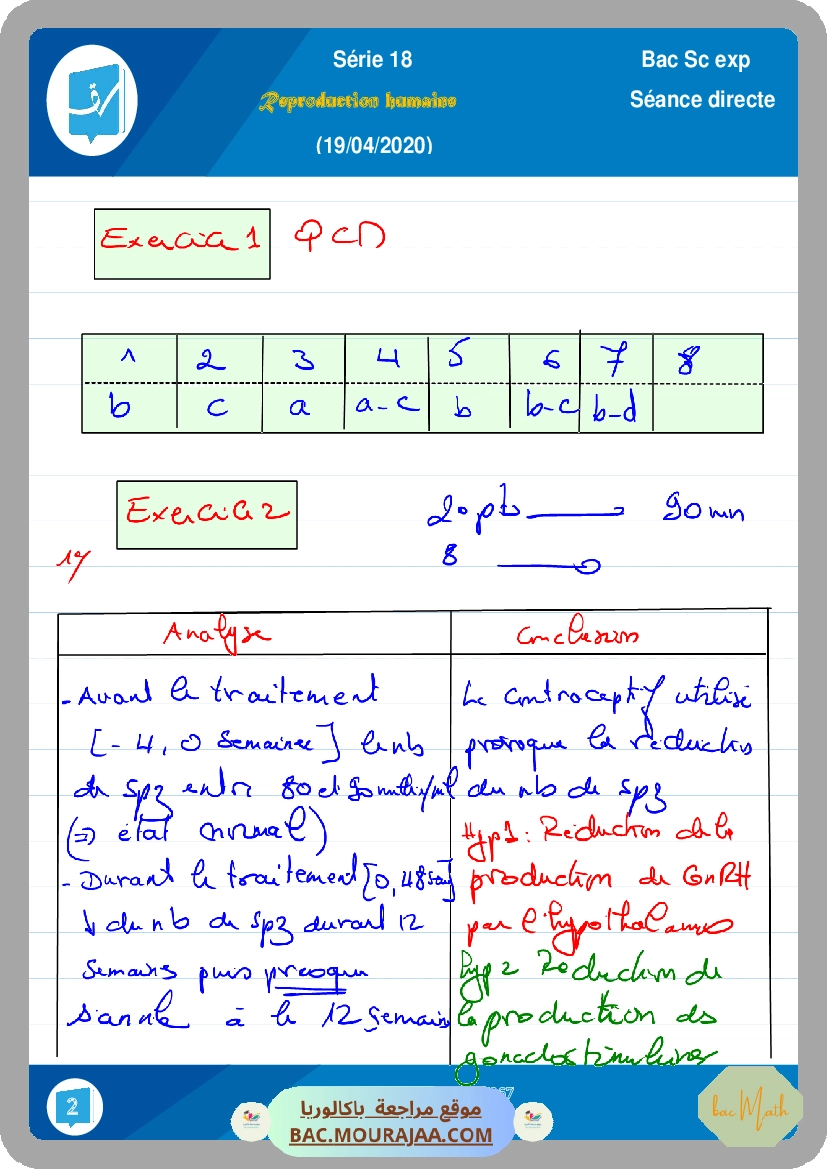 Série 18
Bac Sc exp
Reproduction humaine
Séance directe
(19/04/2020)
Exercice 1 QCM
1 2 3 4 5 6 7 8
b c a a-c b b-c b-d
Exercice 2
20 pts 90 mn
8
1°/
Analyse
Conclusion
- Avant le traitement
[-4, 0 Semaines] le nb
de spz entre 80 et 90 /ml
(⇒ état normal)
- Durant le traitement [0, 48
↓ du nb de spz durant 12
Semaines puis presque
s'annule à la 12 Semaine
Le contraceptif utilisé
provoque la réduction
du nb de spz
Hyp1 : Réduction de la
production de GnRH
par l'hypothalamus
Hyp 2 Réduction de
la production des
gonadostimulines
2
موقع مراجعة باكالوريا
BAC.MOURAJAA.COM
bac Math